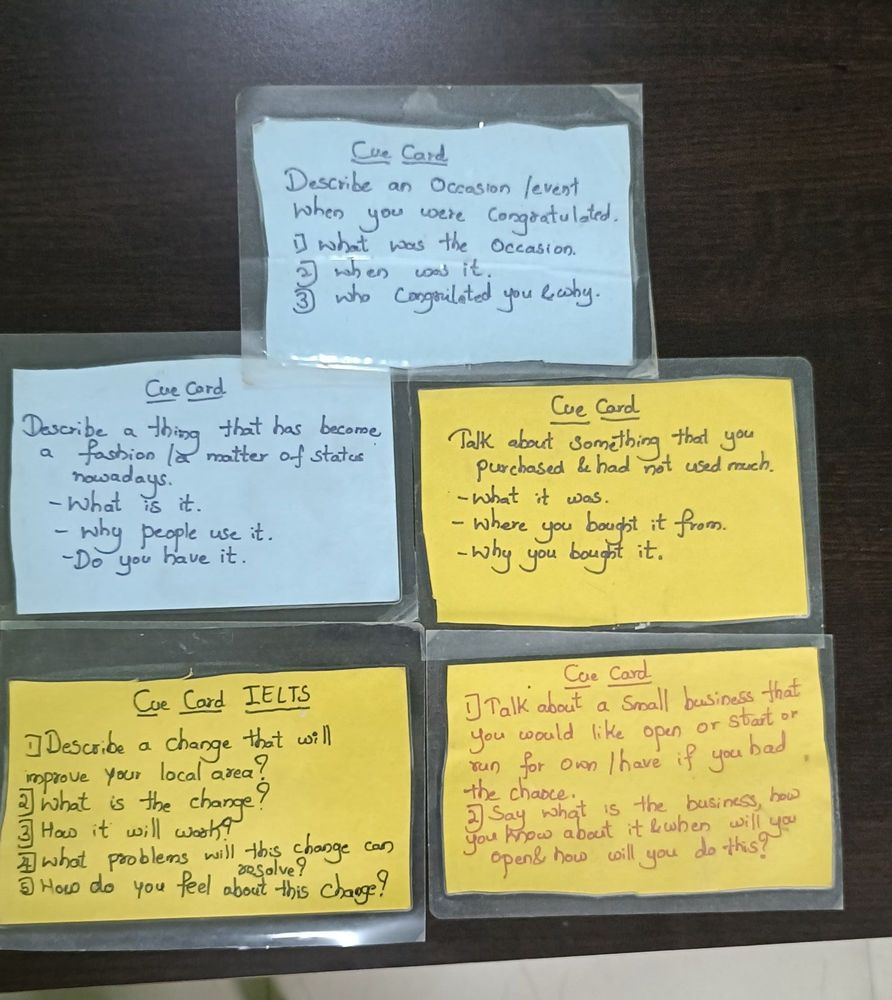 Cue Card
Describe an Occasion /event
when you were Congratulated.
1) what was the Occasion.
2) when was it.
3) who Congrulated you & why.
Cue Card
Describe a thing that has become
a fashion /a matter of status
nowadays.
- What is it.
- Why people use it.
- Do you have it.
Cue Card
Talk about something that you
purchased & had not used much.
- What it was.
- Where you bought it from.
- Why you bought it.
Cue Card IELTS
1) Describe a change that will
improve your local area?
2) What is the change?
3) How it will work?
4) What problems will this change can
resolve?
5) How do you feel about this change?
Cue Card
1) Talk about a Small business that
you would like open or start or
run for own / have if you had
the chance.
2) Say what is the business, how
you know about it & when will you
open & how will you do this?